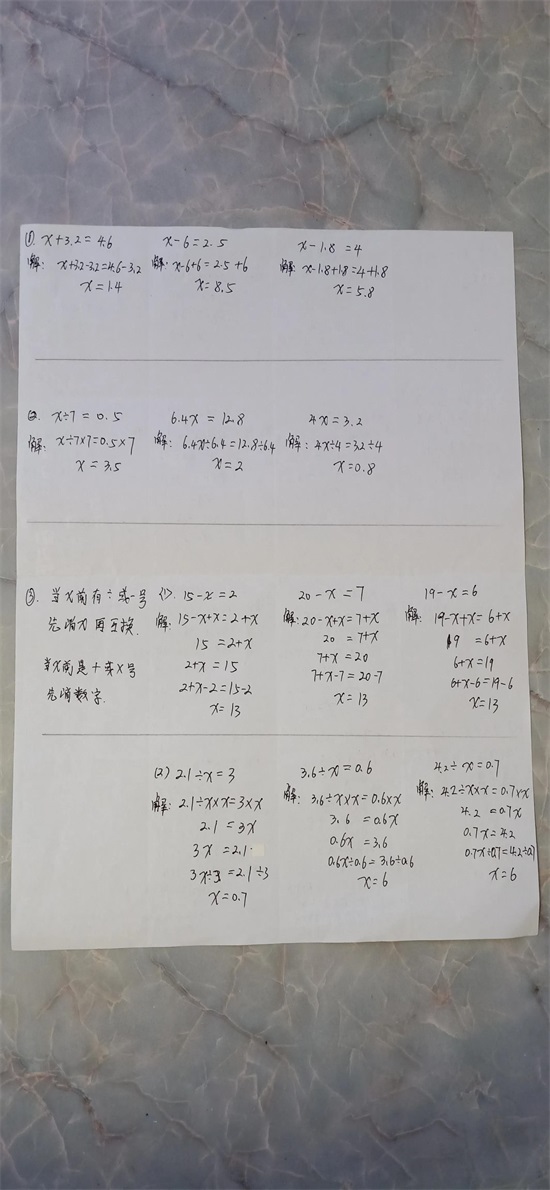 ①. x+3.2=4.6 x-6=2.5 x-1.8=4
解: x+3.2-3.2=4.6-3.2 解: x-6+6=2.5+6 解: x-1.8+1.8=4+1.8
x=1.4 x=8.5 x=5.8
②. x÷7=0.5 6.4x=12.8 4x=3.2
解: x÷7×7=0.5×7 解: 6.4x÷6.4=12.8÷6.4 解: 4x÷4=3.2÷4
x=3.5 x=2 x=0.8
③. 当x前有÷或-号 (1). 15-x=2 20-x=7 19-x=6
先消x再互换. 解: 15-x+x=2+x 解: 20-x+x=7+x 解: 19-x+x=6+x
15=2+x 20=7+x 19=6+x
当x前是+或×号 2+x=15 7+x=20 6+x=19
先消数字. 2+x-2=15-2 7+x-7=20-7 6+x-6=19-6
x=13 x=13 x=13
(2) 2.1÷x=3 3.6÷x=0.6 4.2÷x=0.7
解: 2.1÷x×x=3×x 解: 3.6÷x×x=0.6×x 解: 4.2÷x×x=0.7×x
2.1=3x 3.6=0.6x 4.2=0.7x
3x=2.1 0.6x=3.6 0.7x=4.2
3x÷3=2.1÷3 0.6x÷0.6=3.6÷0.6 0.7x÷0.7=4.2÷0.7
x=0.7 x=6 x=6